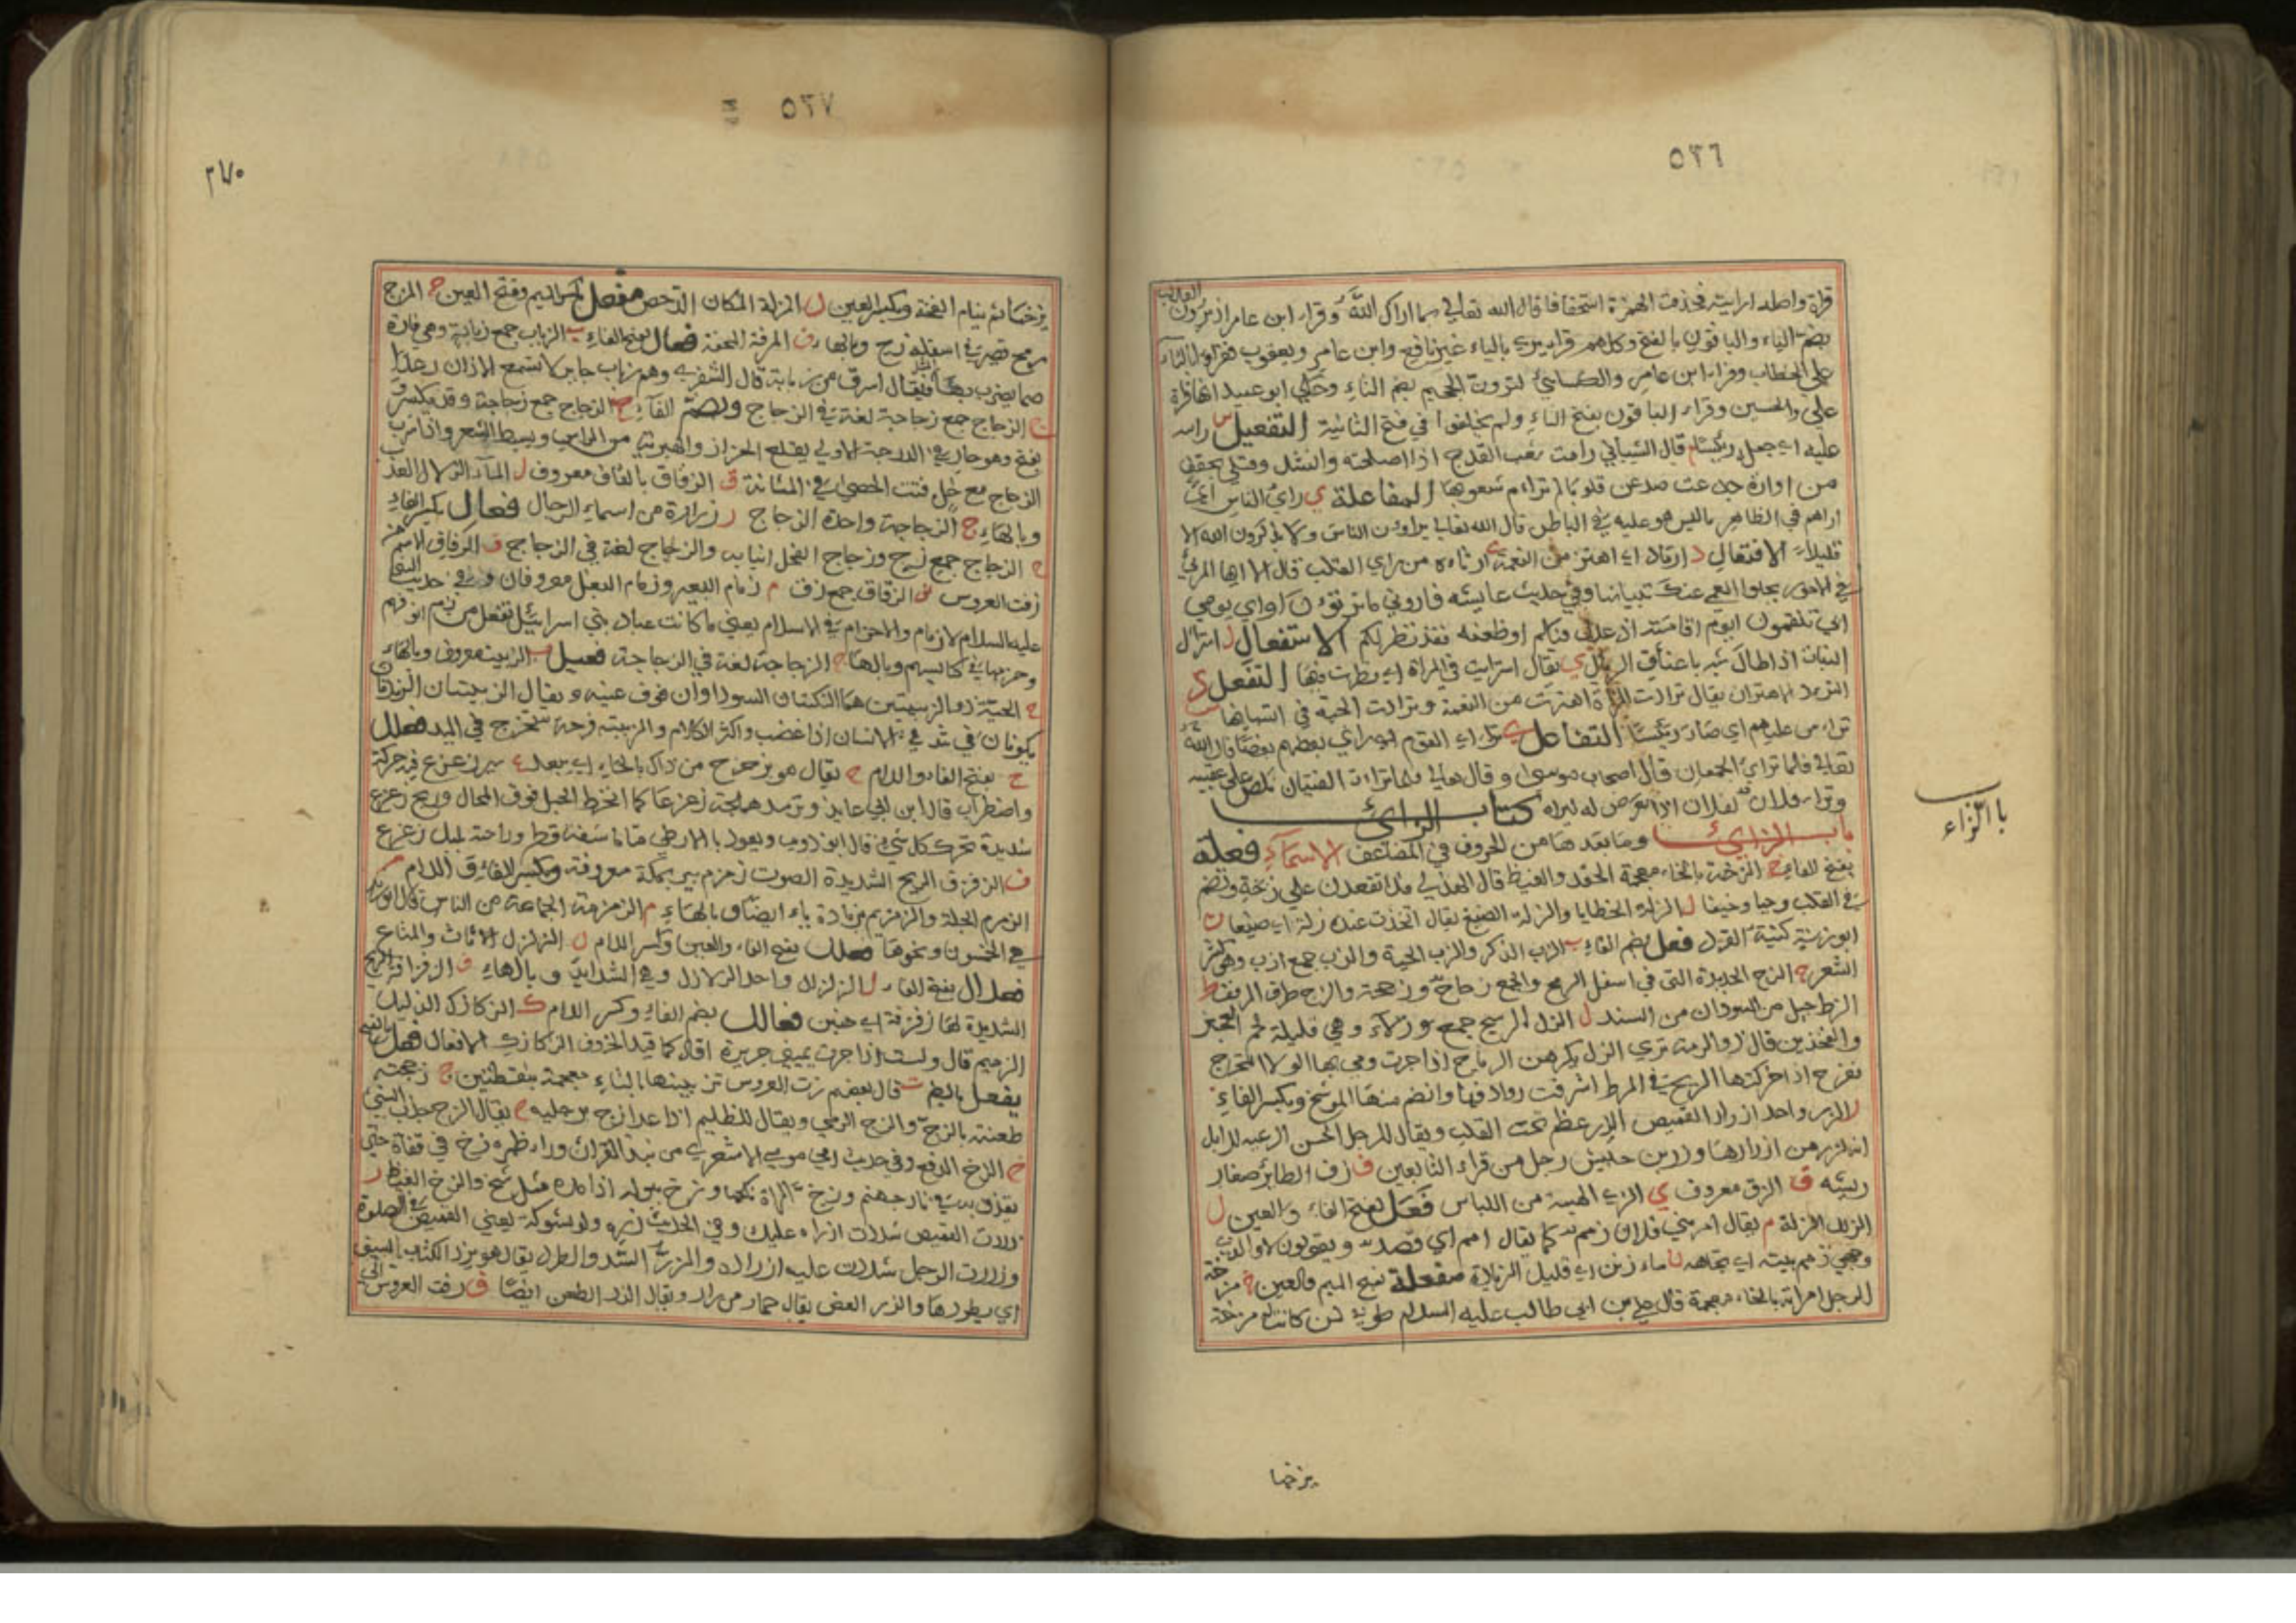 ٥٢٦
قراة واصله ارايت فحذفت الهمزة استخفافا قال الله تعالى بما اراك الله وقرا ابن عامر اذ يرون العذاب
بضم الياء والباقون بالفتح وكلهم قرا يرى بالياء غير نافع وابن عامر ويعقوب فقراوا بالتاء
على الخطاب وقرا ابن عامر والكسائي لترون الجحيم بضم التاء وحكى ابو عبيد انها قراة
علي والحسن وقراء الباقون بفتح التاء ولم يختلفوا في فتح الثانية التفعيل س راسه
عليه اي جعله رئيسا م قال الشيباني رامت شعب القدح اذا اصلحته وانشد وقتلى بحقف
من اوارة جدعت صدعن قلوبا لم تراءم شعوبها المفاعلة ي راى الناس اي
اراهم في الظاهر ما ليس هو عليه في الباطن قال الله تعالى يراؤن الناس ولا يذكرون الله الا
قليلا الافتعال د ارتاد اي اهتز من النعمة ي ارتاه من راي القلب قال الا ايها المرتئي
في الامور سيجلو العمى عنك تبيانها وفي حديث عايشة
الاستفعال ل استرال
النبات اذا طال شبه باعناق الرئال ي يقال استرايت في المراة اي نظرت فيها التفعل د
التريد الاهتزاز يقال ترادت المراة اهتزت من النعمة وترادت الحية في انسيابها س
تراس عليهم اي صار رئيسا التفاعل ي تراى القوم اي راى بعضهم بعضا قال الله
تعالى فلما تراى الجمعان قال اصحاب موسى وقال تعالى فلما تراءت الفئتان نكص على عقبيه
وتراى فلان لفلان اذا تعرض له ليراه كتاب الزاي
باب الزاي وما بعدها من الحروف في المضاعف الاسماء فعلة
باب الزاء
بفتح الفاء خ الزخة بالخاء معجمة الحقد والغيظ قال الهذلي فلا تقعدن على زخة وتضمر
في القلب وجدا وخيفا ل الزلة الخطايا والزلة الصنيع يقال اتخذت عنده زلة اي صنيعا ن
ابو زنة كنية القرد فعل بضم الفاء ب الزب الذكر والزب اللحية والزب جمع ازب وهو كثير
الشعر ج الزج الحديدة التي في اسفل الرمح والجمع زجاج وزججة والزج طرف المرفق ط
الزط جيل من السودان من السند ل الزل الرسح جمع زلاء وهي قليلة لحم العجز
والفخذين قال ذو الرمة ترى الزل يكرهن الرياح اذا جرت ومي بها لولا التحرج
تفرح اذا حركتها الريح في المرط اشرفت روادفها وانضم منها الموشح وبكسر الفاء
ر الزر واحد ازرار القميص الزر عظم تحت القلب ويقال للرجل الحسن الرعية للابل
انه لزر من ازرارها وزر بن حبيش رجل من قراء التابعين ف زف الطائر صغار
ريشه ق الزق معروف ي الزي الهيئة من اللباس فعل بفتح الفاء والعين ل
الزلل الزلة م يقال امر بني فلان زمم كما يقال امم اي قصد ويقولون لا والذي
وجهي زمم بيته اي تجاهه ن ماء زنن اي قليل الزيادة مفعلة بفتح الميم والعين خ مزخة
الرجل امراته بالخاء معجمة قال علي بن ابي طالب عليه السلام طوبى لمن كانت له مزخة
يزخها
٥٢٧
٣٧٠
يزخها ثم ينام الفخة وبكسر العين ل المزلة المكان الدحض مفعل بكسر الميم وفتح العين ج المزج
رمح قصير في اسفله زج وبالهاء ف المزفة المحفة فعال بفتح الفاء ب الزباب جمع زبابة وهي فارة
صماء يضرب بها المثل فيقال اسرق من زبابة قال الشاعر وهم زباب حاير لا تسمع الاذان رعدا
ج الزجاج جمع زجاجة لغة في الزجاج وبضم الفاء ج الزجاج جمع زجاجة وقد يكسر و
يفتح وهو حار في الدرجة الاولى يقلع الحزاز والهبرية من الراس ويبسط الشعر واذا شرب
الزجاج مع خل فتت الحصى في المثانة ق الزقاق بالقاف معروف ل الماء الزلال العذب
وبالهاء ج الزجاجة واحدة الزجاج ر زرارة من اسماء الرجال فعال بكسر الفاء
ج الزجاج جمع زج وزجاج الفحل انيابه والزجاج لغة في الزجاج ف الزفاف الاسم من
زفت العروس ق الزقاق جمع زق م زمام البعير وزمام النعل معروفان وفي حديث النبي
عليه السلام لا زمام ولا خزام في الاسلام يعني ما كانت عباد بني اسرائيل تفعل من زم انوفهم
وخزمها في كنائسهم وبالهاء ج الزجاجة لغة في الزجاجة فعيل ب الزبيب معروف وبالهاء
ح الحية ذو الزبيبتين هما النكتتان السوداوان فوق عينيه ويقال الزبيبتان الزبدتان
يكونان في شدقي الانسان اذا غضب واكثر الكلام والزبيبة قرحة تخرج في اليد فعلل
ح بفتح الفاء واللام ح يقال هو بزحزح من ذاك بالحاء اي ببعد ع سير زعزع فيه حركة
واضطراب قال ابن ابي عايذ وترمد هملجة زعزعا كما انخرط الحبل فوق المحال وريح زعزع
شديدة تحرك كل شيء قال ابو ذويب ويعود بالارطى متى ما شفه قطر وراحته بليل زعزع
ف الزفزف الريح الشديدة الصوت زمزم بير بمكة معروفة وبكسر الفاء واللام م
الزمزم الجلة والزمزيم بزيادة ياء ايضا وبالهاء م الزمزمة الجماعة من الناس قال ابو زيد
هي الخمسون ونحوها فعلل بفتح الفاء والعين وكسر اللام ل الزلزل الاثاث والمتاع
فعلال بفتح الفاء ل الزلزال واحد الزلازل وهي الشدايد وبالهاء ف الزفزافة الريح
الشديدة لها زفزفة اي حنين فعالل بضم الفاء وكسر اللام ك الزكازك الذليل
الزميم قال ولست اذا جرت يميني جريرة اقاد كما قيد الخروف الزكازك الافعال فعل بالفتح
يفعل بالضم ت قال بعضهم زت العروس تزيينها بالتاء معجمة بنقطتين ج زججته
طعنته بالزج والزج الرمي ويقال للظليم اذا عدا زج برجليه ح يقال الزح جذب الشيء
خ الزخ الدفع وفي حديث ابي موسى الاشعري من نبذ القران وراء ظهره زخ في قفاه حتى
يقذف به في نار جهنم وزخ المراة نكحها وزخ ببوله اذا مده مثل شخ والزخ الغيظ ر
زررت القميص شددت ازراره عليك وفي الحديث زره ولو بشوكة يعني القميص في الصلوة
وزررت الرجل شددت عليه ازراره والزر الشد والطرد يقال هو يزر الكتائب بالسيف
اي يطردها والزر العض يقال حمار مزر ويقال الزر الطعن ايضا ف زفت العروس الى